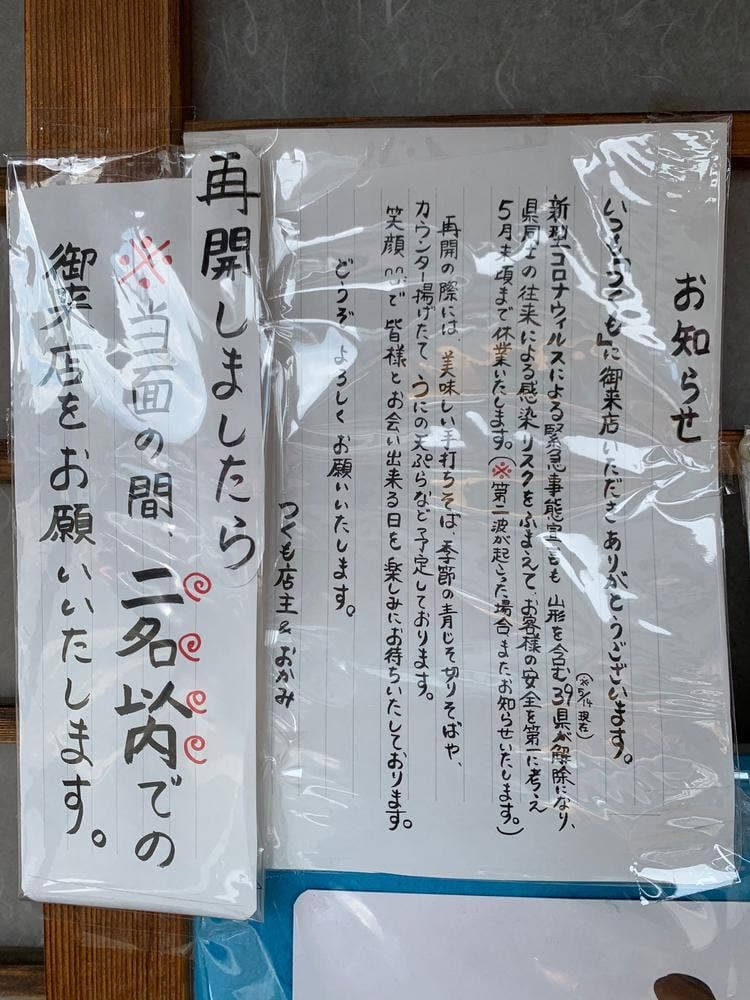 お知らせ
いつも『つくも』に御来店いただきありがとうございます。
(※5/14 現在)
新型コロナウィルスによる緊急事態宣言も 山形を含む39県が解除になり、
県同士の往来による感染リスクをふまえて、お客様の安全を第一に考え
5月末頃まで休業いたします。(※第二波が起こった場合、またお知らせいたします。)
再開の際には、美味しい手打ちそば、季節の青じそ切りそばや、
カウンター揚げたて、うにの天ぷらなど予定しております。
笑顔で 皆様とお会い出来る日を 楽しみにお待ちいたしております。
どうぞ よろしく お願いいたします。
つくも店主 & おかみ
再開しましたら
※当面の間、二名以内での
御来店をお願いいたします。